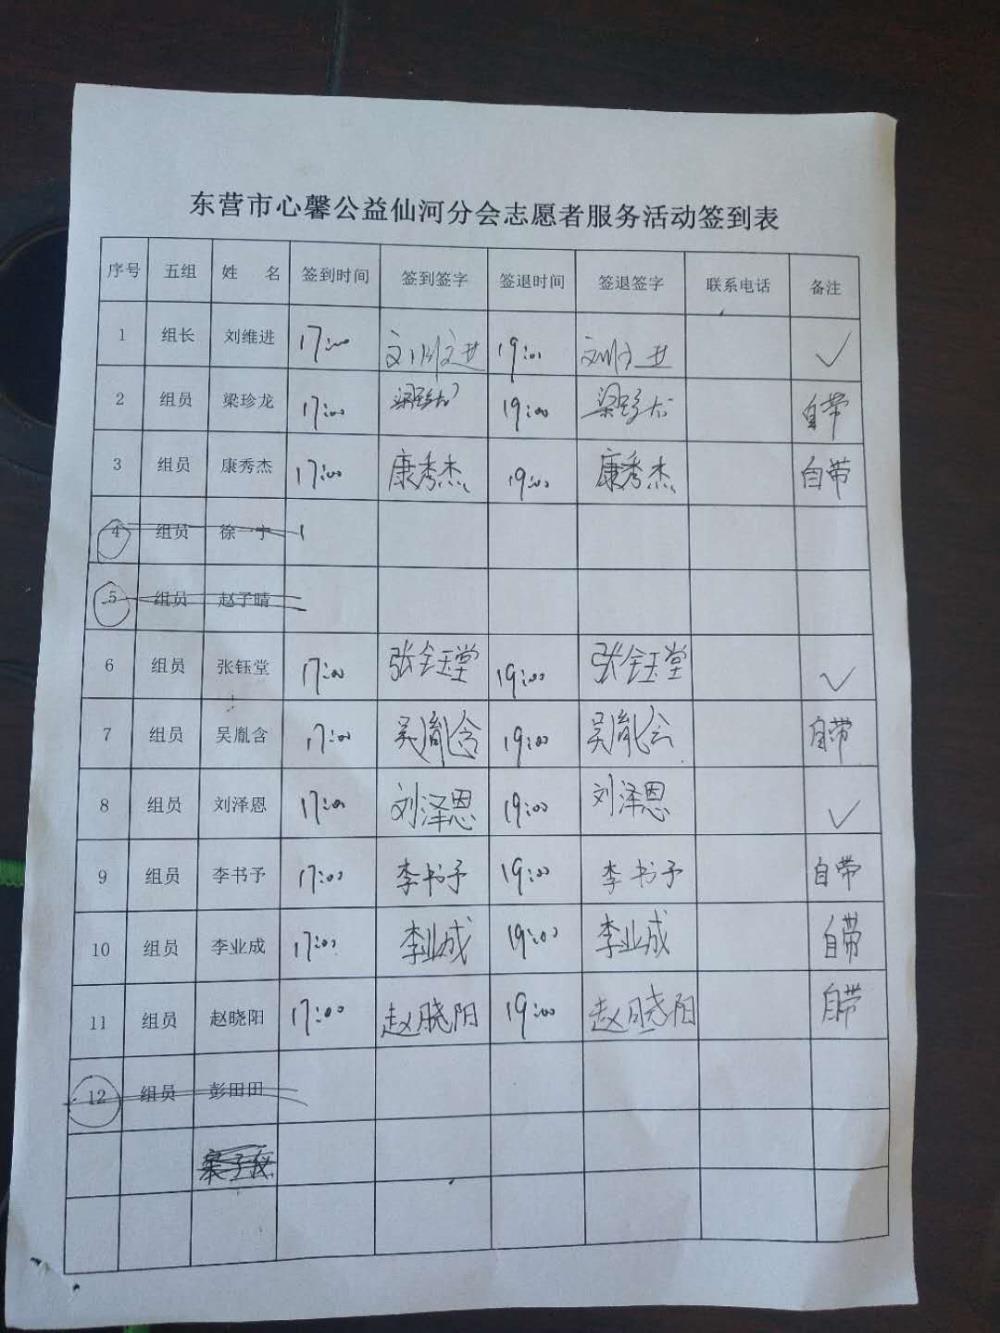 东营市心馨公益仙河分会志愿者服务活动签到表
序号 五组 姓 名 签到时间 签到签字 签退时间 签退签字 联系电话 备注
1 组长 刘维进 17:00 刘维进 19:00 刘维进 ✓
2 组员 梁珍龙 17:00 梁珍龙 19:00 梁珍龙 自带
3 组员 康秀杰 17:00 康秀杰 19:00 康秀杰 自带
4 组员 徐宁
5 组员 赵子晴
6 组员 张钰堂 17:00 张钰堂 19:00 张钰堂 ✓
7 组员 吴胤含 17:00 吴胤含 19:00 吴胤含 自带
8 组员 刘泽恩 17:00 刘泽恩 19:00 刘泽恩 ✓
9 组员 李书予 17:00 李书予 19:00 李书予 自带
10 组员 李业成 17:00 李业成 19:00 李业成 自带
11 组员 赵晓阳 17:00 赵晓阳 19:00 赵晓阳 自带
12 组员 彭田田